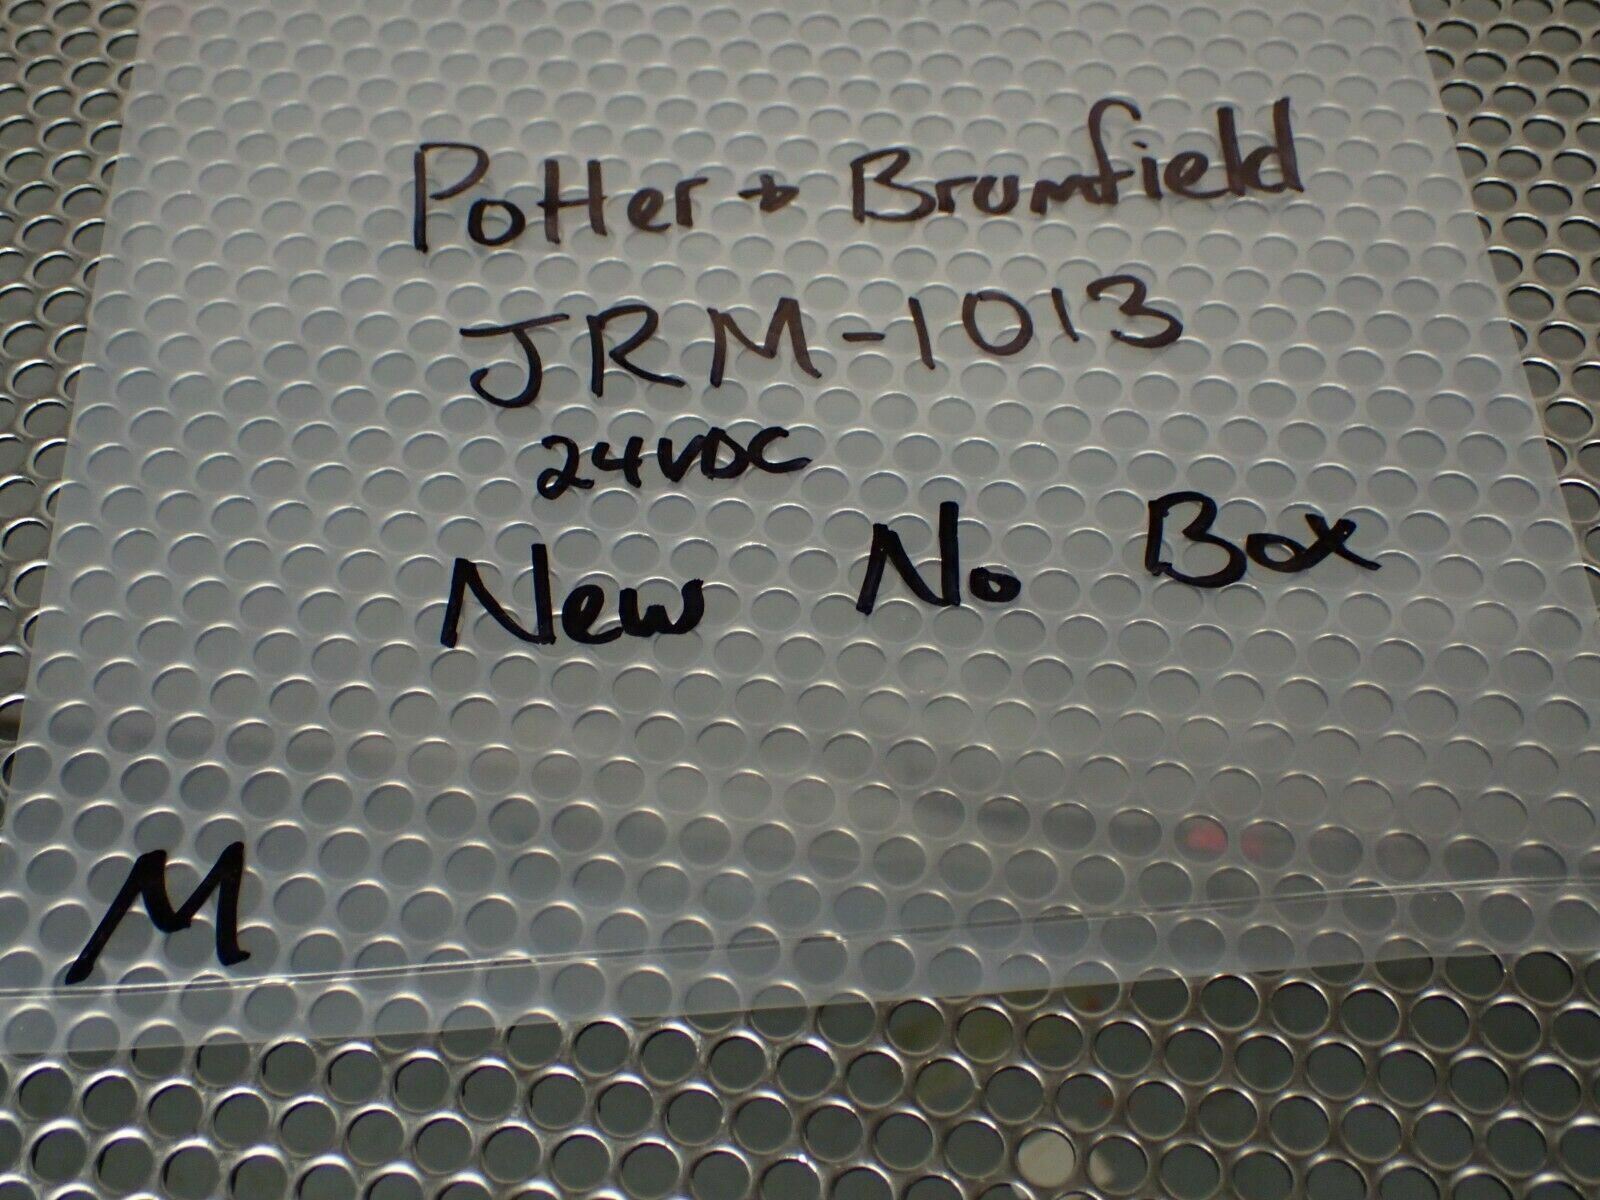 Potter + Brumfield
JRM-1013
24VDC
New No Box
M